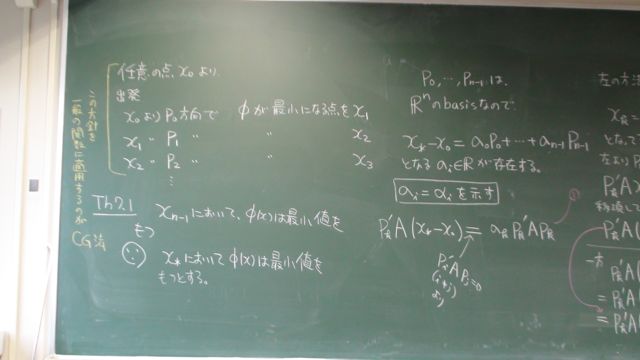 この方針を
一般の関数に適用するのが
CG法
任意の点 x₀ より
出発
x₀ より P₀ 方向で φが最小になる点を x₁
x₁ 〃 P₁ 〃 〃 x₂
x₂ 〃 P₂ 〃 〃 x₃
⋮
Th 2.1 xₙ₋₁において、φ(x)は最小値を
もつ
x*において φ(x)は最小値を
もつとする。
P₀, …, Pₙ₋₁ は、
ℝⁿ の basis なので
x* - x₀ = a₀P₀ + … + aₙ₋₁Pₙ₋₁
となる aᵢ∈ℝ が存在する。
aᵢ = αᵢ を示す
Pₖ'A(x* - x₀) = aₖPₖ'APₖ
Pᵢ'APⱼ=0
(i≠j)
より
左の方法
xₖ =
となって
左より
Pₖ'A
移項して
Pₖ'A(
一方
Pₖ'A(
= Pₖ'A(
= Pₖ'A(